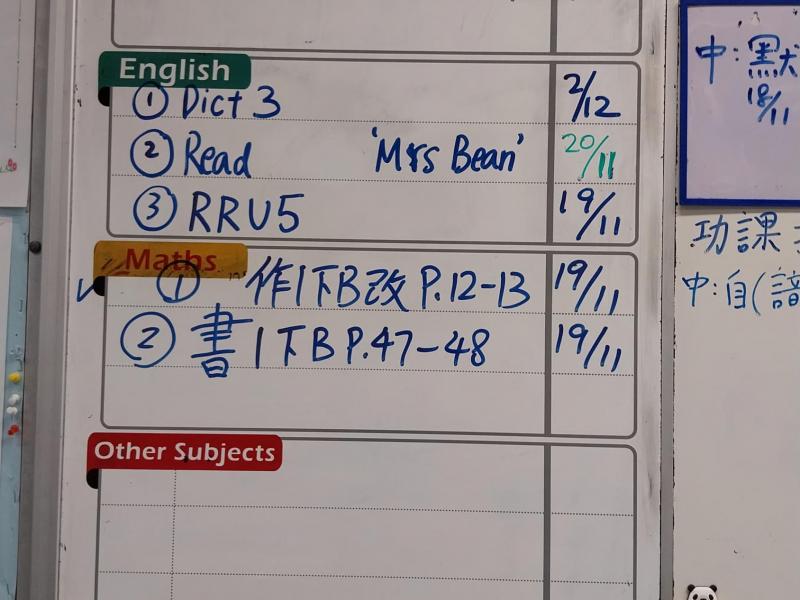 English
① Dict 3 2/12
② Read 'Mrs Bean' 20/11
③ RRU5 19/11
Maths
① 作1下B改 P.12-13 19/11
② 書1下B P.47-48 19/11
Other Subjects
中:默
18/11
功課
中:自(